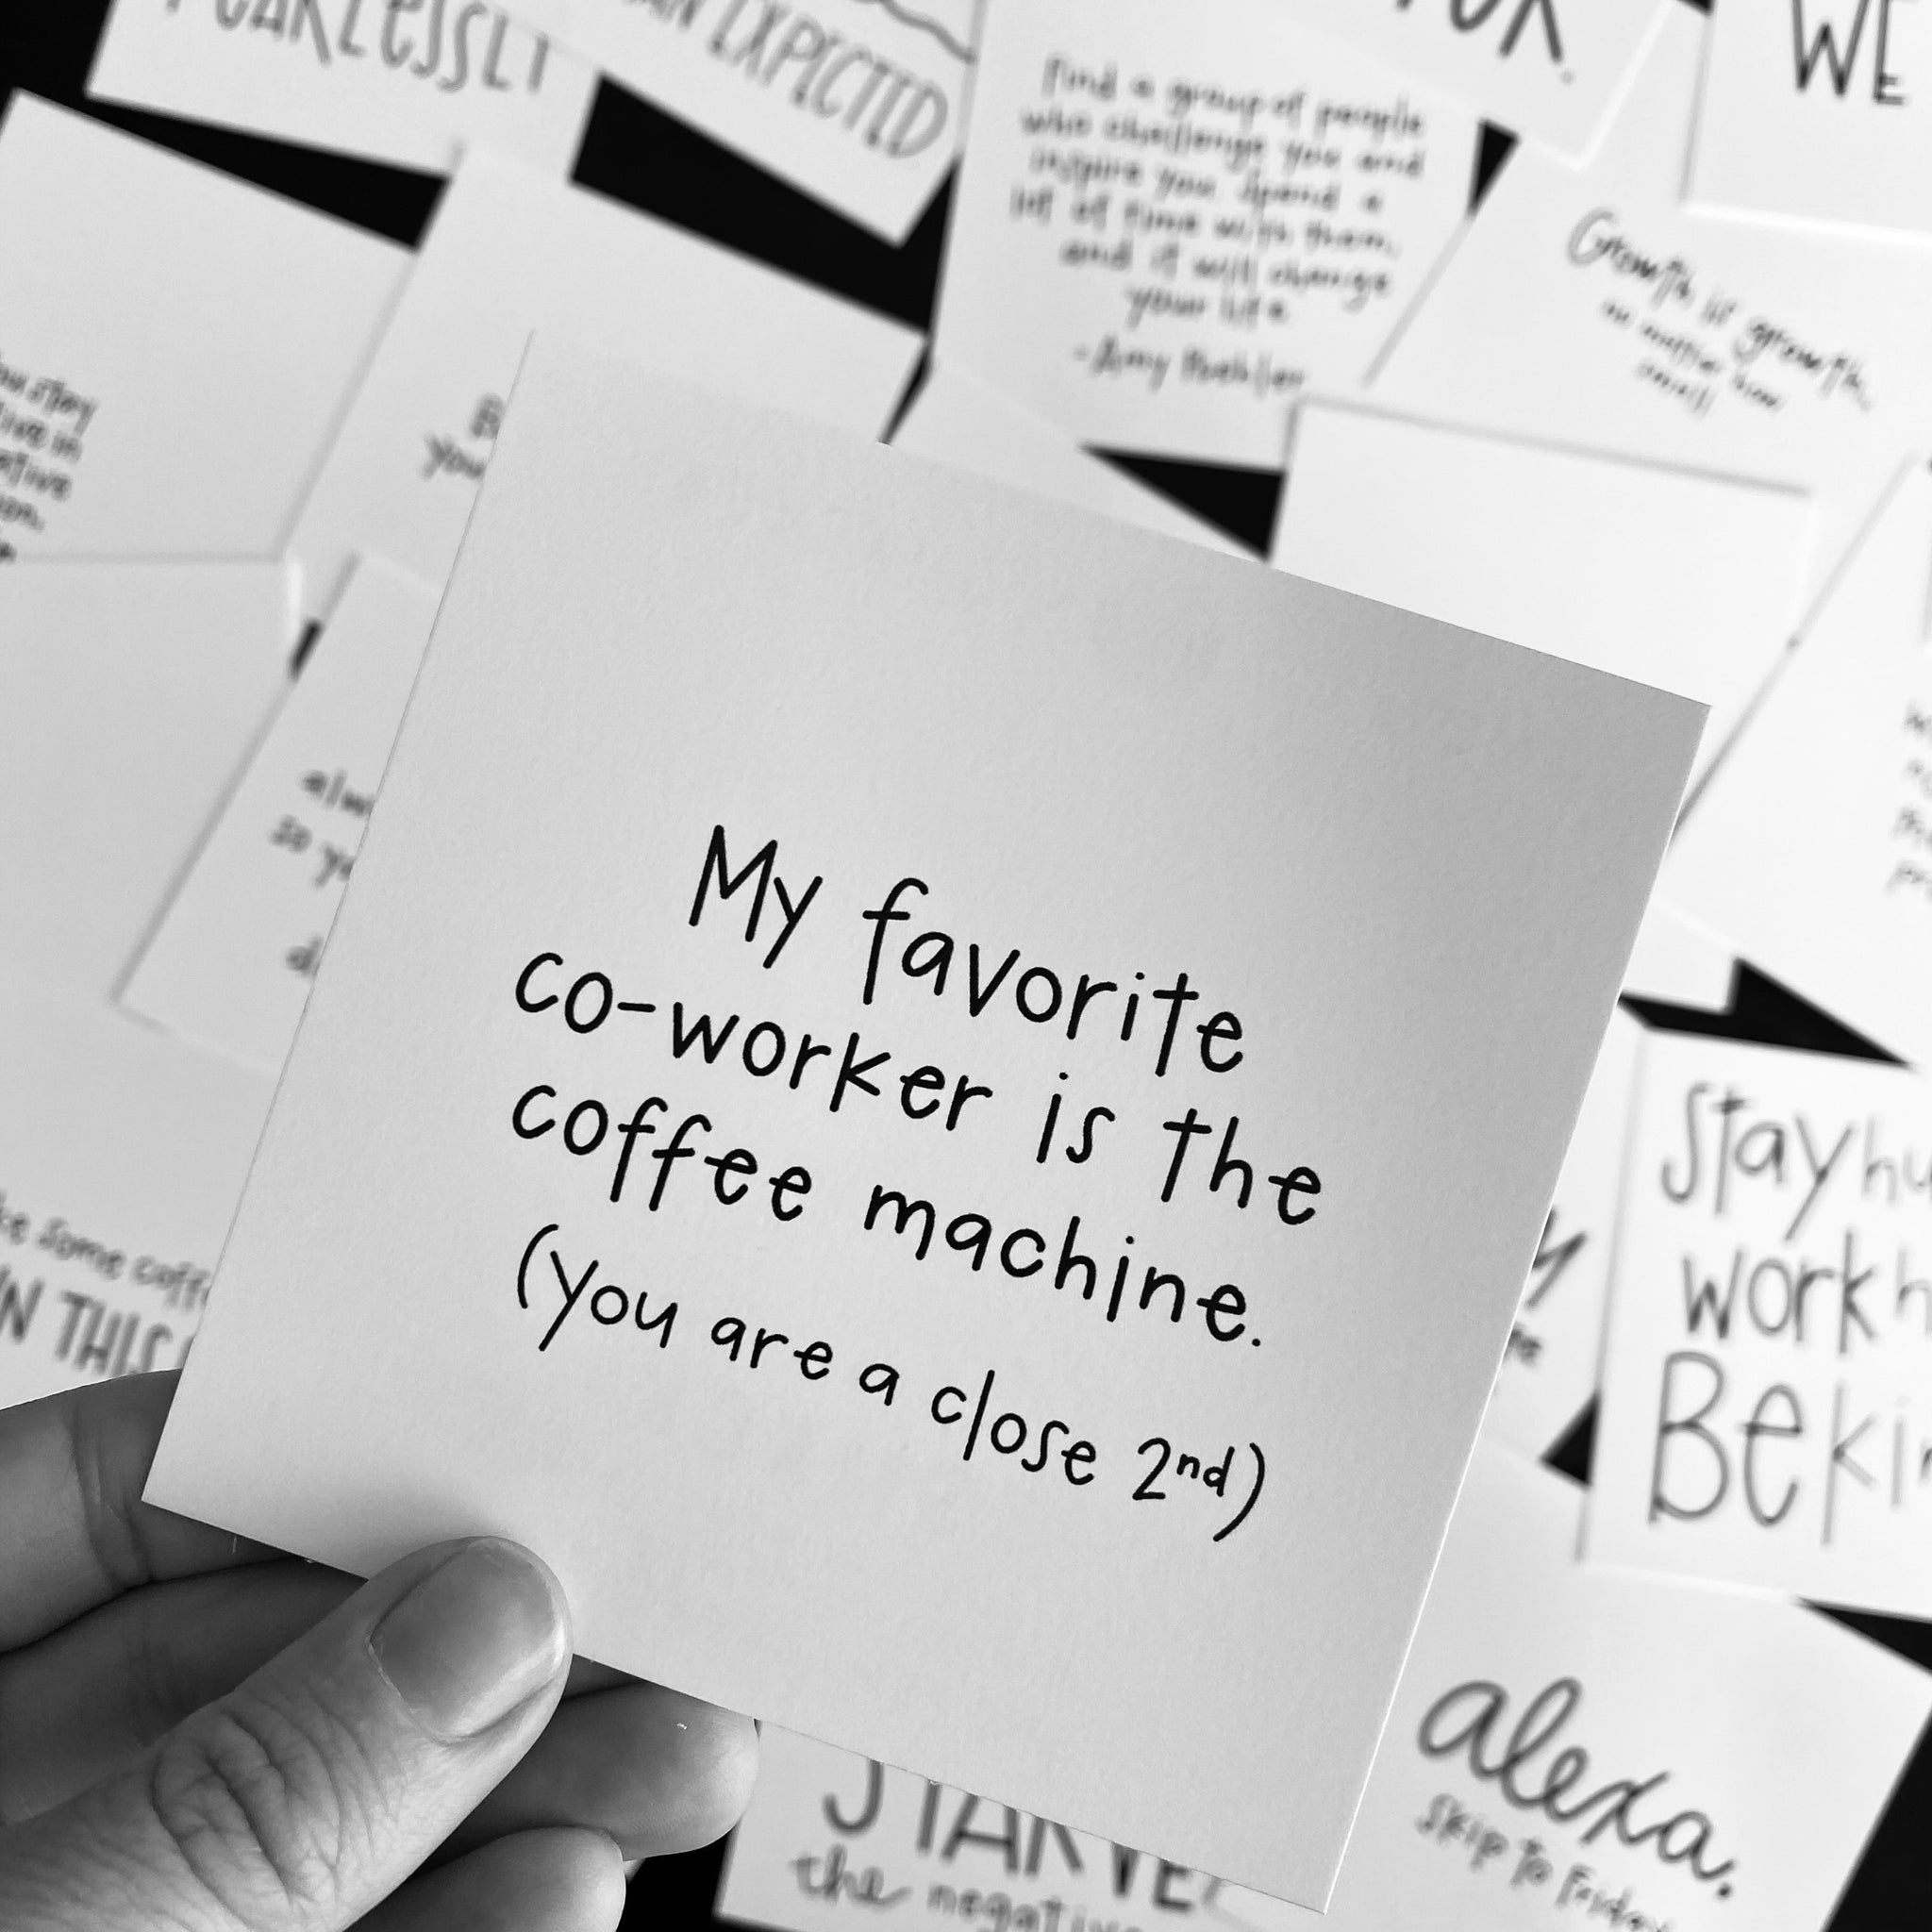 FEARLESSLY
EXPECTED
WE
Find a group of people
who challenge you and
inspire you. Spend a
lot of time with them,
and it will change
your life.
-Amy Poehler
Growth is growth,
no matter how
small
stay
live in
My favorite
co-worker is the
coffee machine.
(you are a close 2nd)
some
THIS
Stay
work
Be
STARVE
the
alexa.
skip to Friday